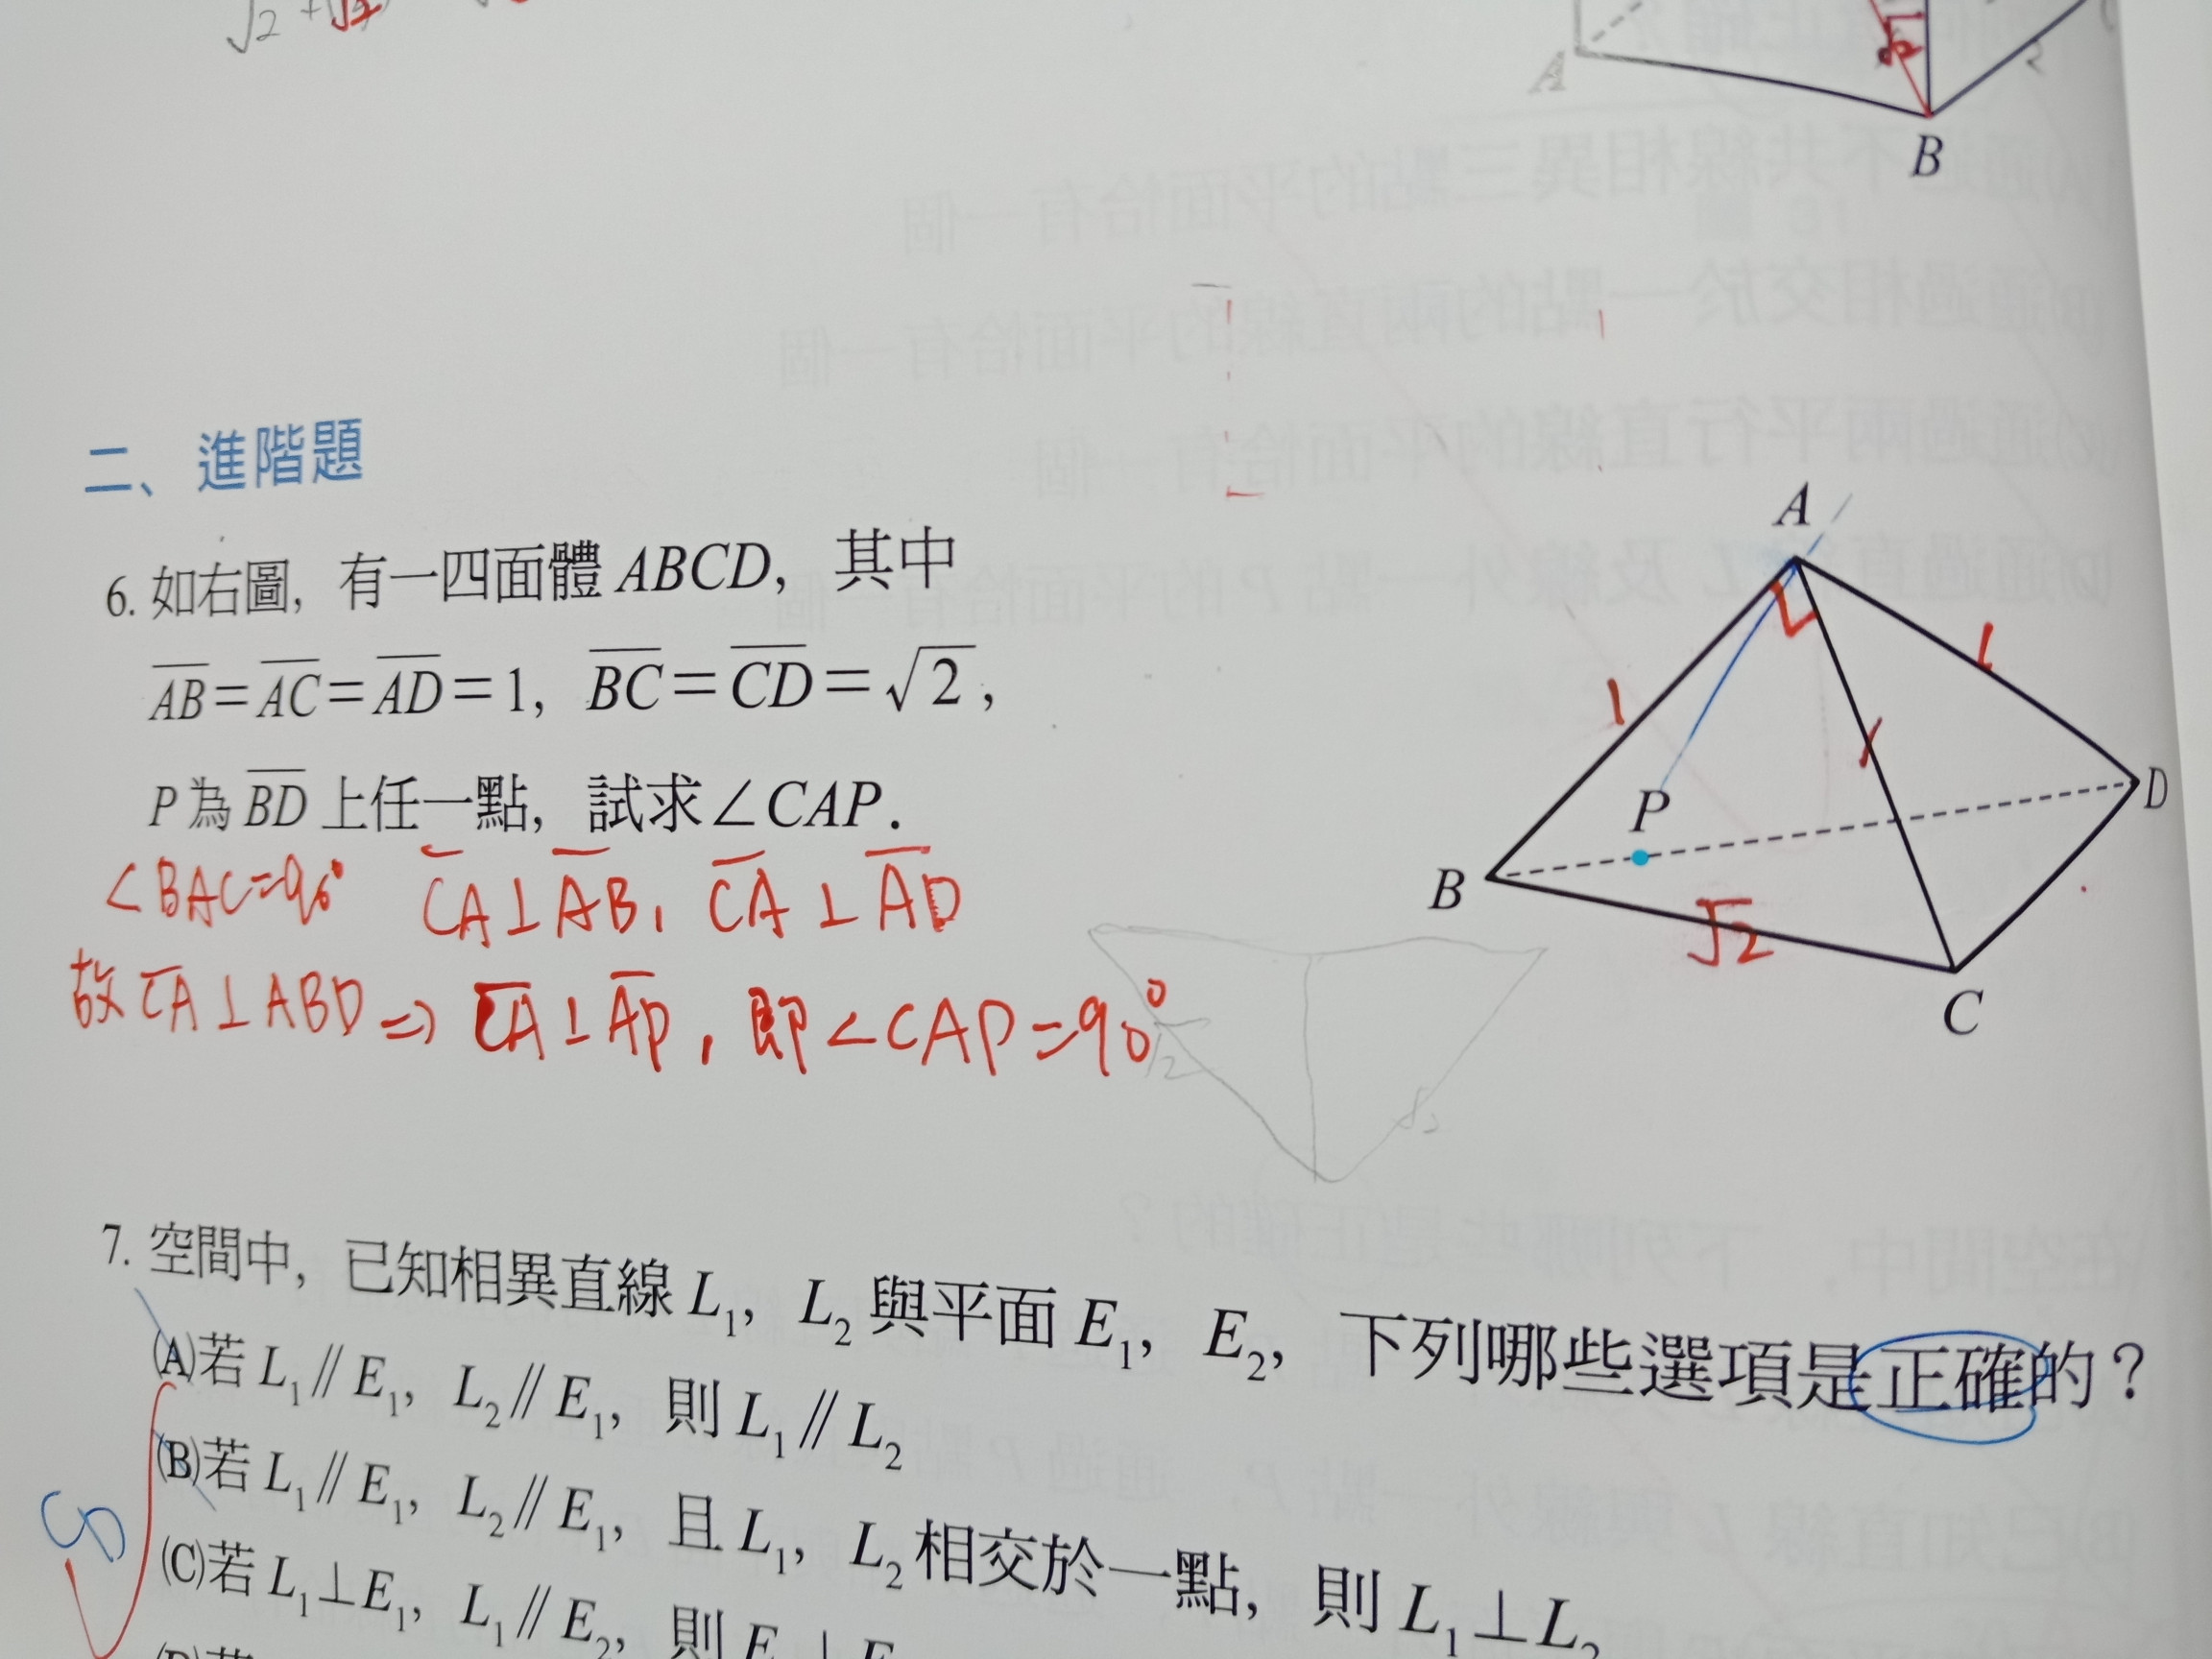 √2 + √2
A
2
B
二、進階題
6. 如右圖，有一四面體 ABCD，其中
AB=AC=AD=1，BC=CD=√2，
P 為 BD 上任一點，試求∠CAP.
A
1
1
P
B
D
√2
C
∠BAC=90° CA⊥AB, CA⊥AD
故CA⊥ABD => CA⊥AP, 即∠CAP=90°
√2
√2
7. 空間中，已知相異直線 L₁，L₂ 與平面 E₁，E₂，下列哪些選項是正確的？
(A)若 L₁∥E₁，L₂∥E₁，則 L₁∥L₂
(B)若 L₁∥E₁，L₂∥E₁，且 L₁，L₂ 相交於一點，則 L₁⊥L₂
CD
(C)若 L₁⊥E₁，L₁∥E₂，則 E ⊥ E